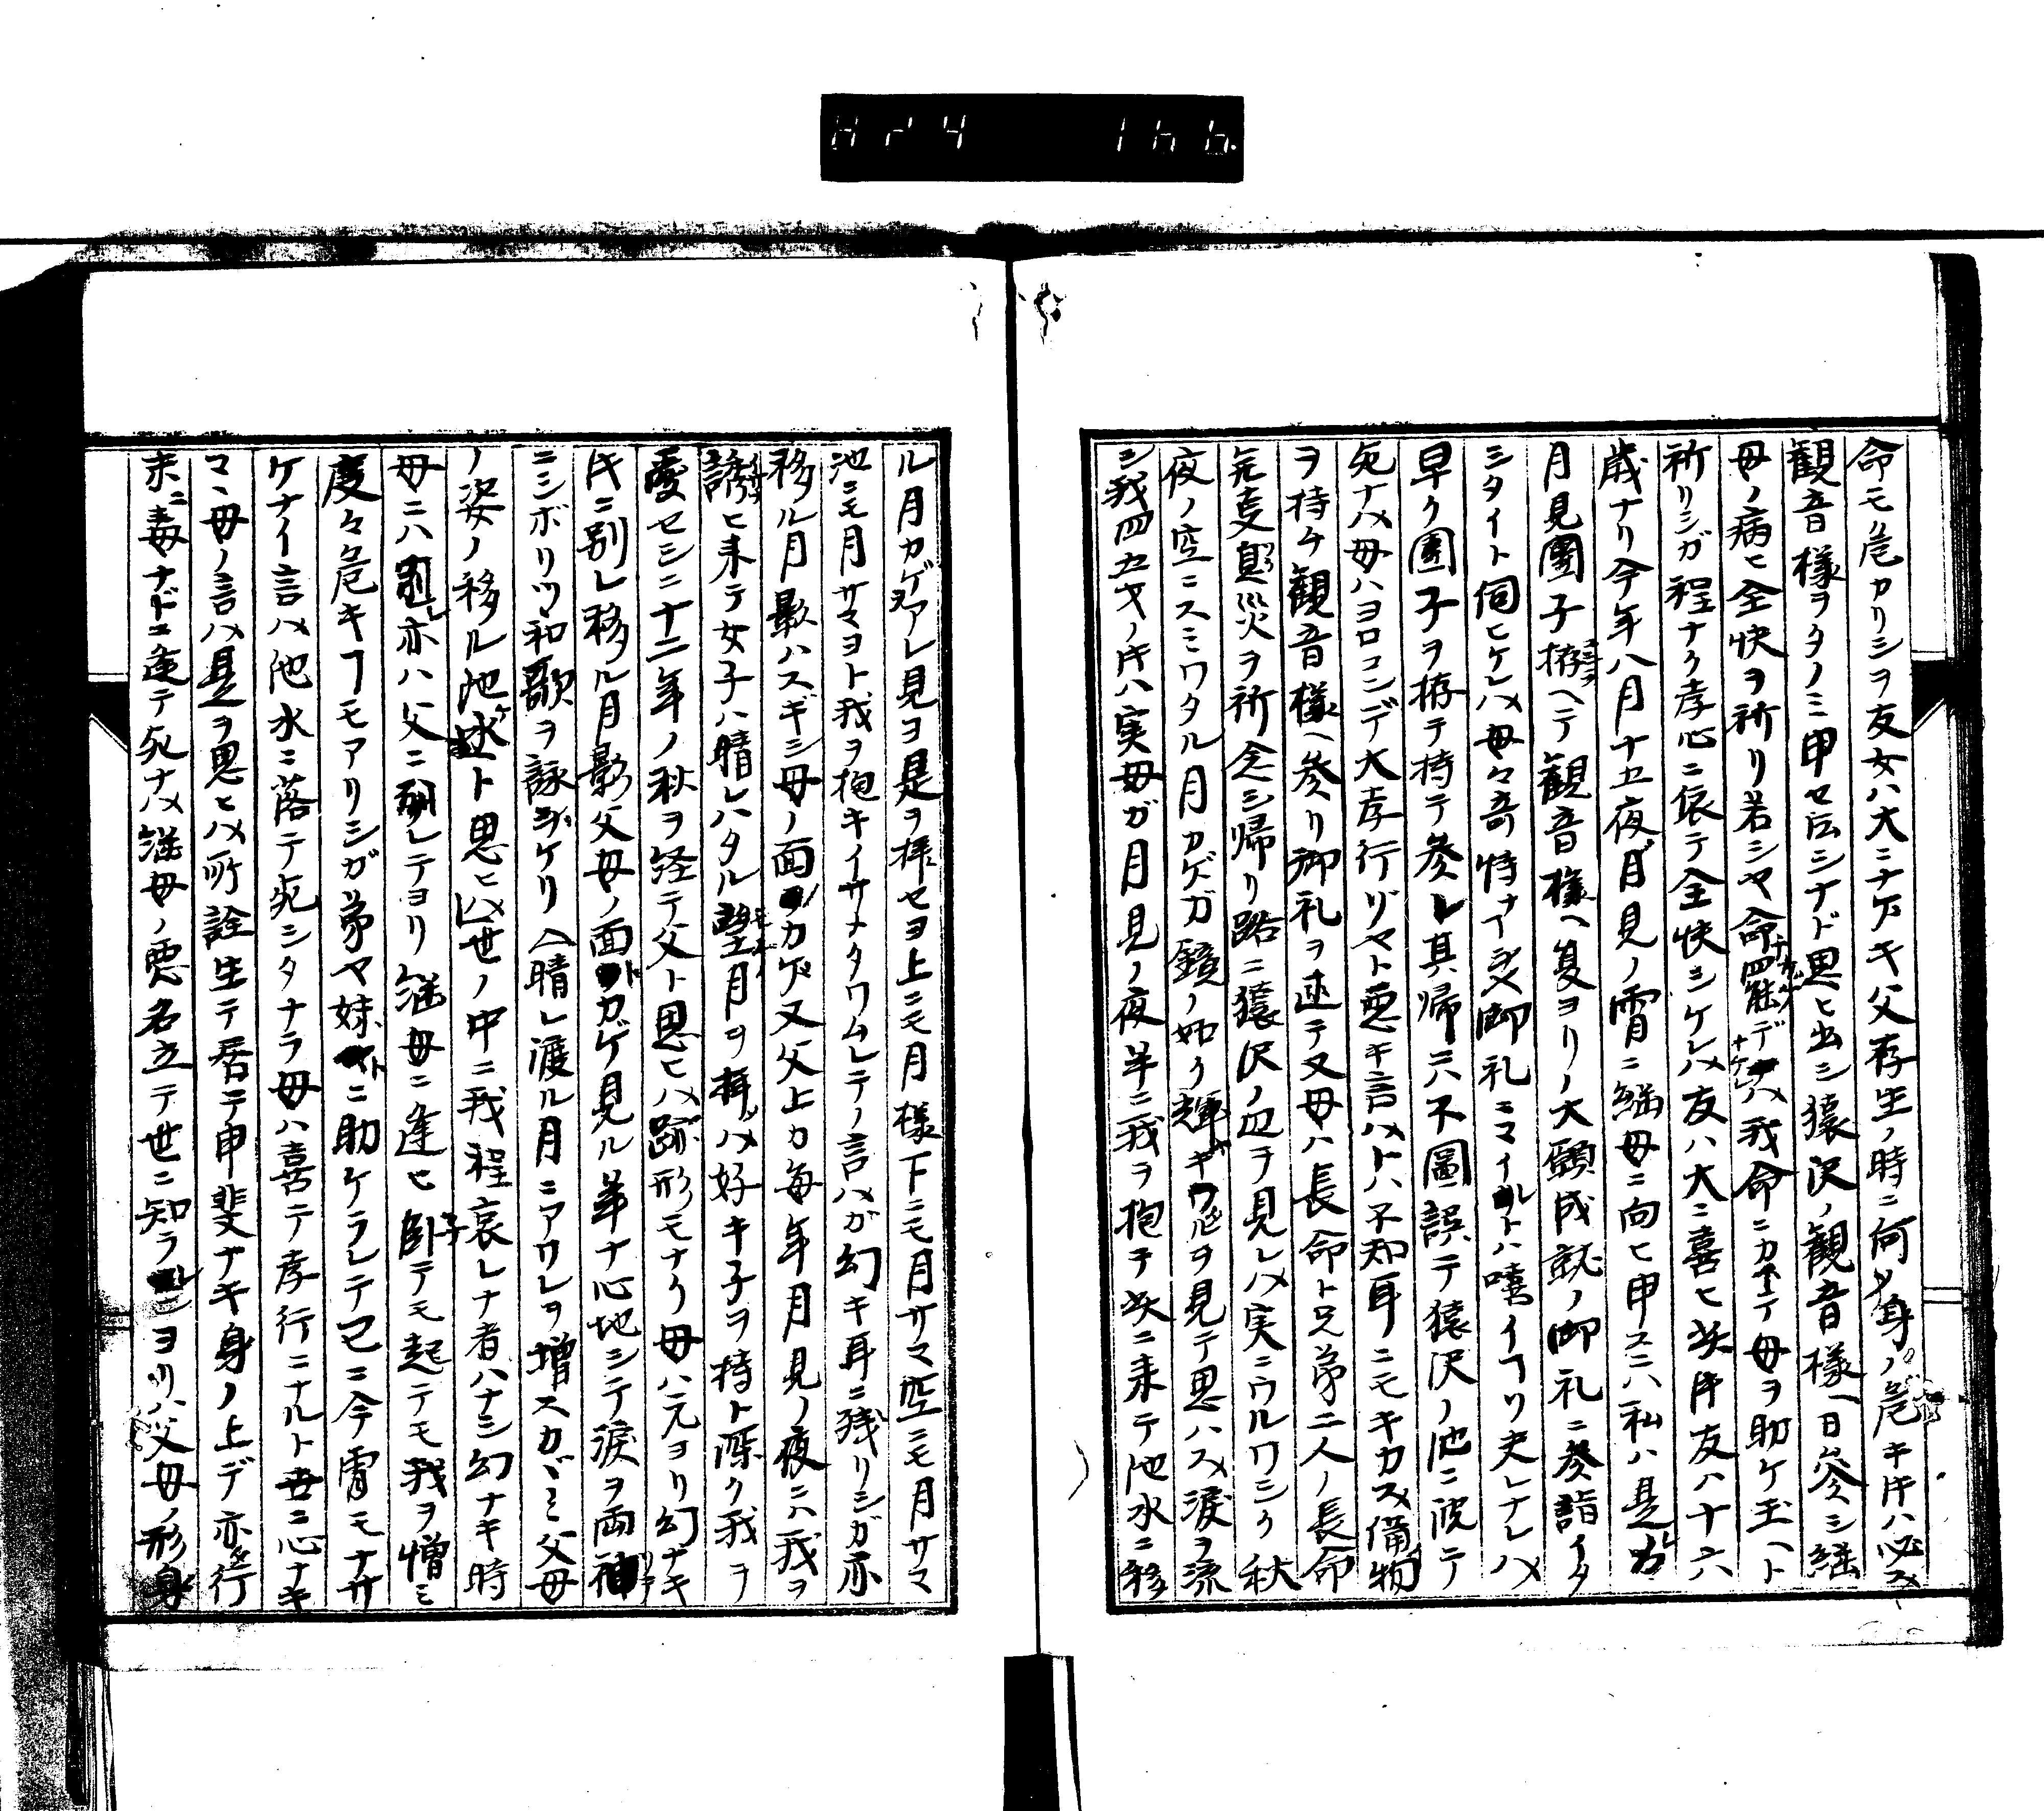 命モ危カリシヲ友女ハ大ニナゲキ父存生ノ時ニ何身ノ危キ片ハ必ス
観音様ヲタノミ申セ伝シナド思ヒ出シ猿沢ノ観音様ヘ日参シ継
母ノ病ヒ全快ヲ祈リ若シヤ命デナケレハ我命ニカヘテ母ヲ助ケ玉ヘト
祈リシガ程ナク孝心ニ依テ全快シケレハ友ハ大ニ喜ヒ此片友ハ十六
歳ナリ今年八月十五夜月見ノ宵ニ継母ニ向ヒ申スニハ私ハ是カラ
月見團子拵ヘテ観音様ヘ夏ヨリノ大願成就ノ御礼ニ参詣イタ
シタイト伺ヒケレハ母々奇特ナイ御礼ニマイルトハ嘻イフリ夫レナレハ
早ク團子ヲ拵テ持テ参レ其帰ニハ不圖誤テ猿沢ノ池ニ陥テ
死ナハ母ハヨロコンデ大孝行ヅヤト悪キ言ハトハ不知耳ニモキカス備物
ヲ持チ観音様ヘ参リ御礼ヲ述テ又母ハ長命ト兄弟二人ノ長命
無㕝息災ヲ祈念シ帰リ路ニ猿沢ノ辺ヲ見レハ実ニウルワシク秋
夜ノ空ニスミワタル月カゲガ鏡ノ如ク輝キ池ヲ見テ思ハス涙ヲ流
シ我四五才ノ片ハ実母ガ月見ノ夜半ニ我ヲ抱キ此ニ来テ池水ニ移
ル月カゲアレ見ヨ是ヲ拝セヨ上ニモ月様下ニモ月サマ空ニモ月サマ
池ニモ月サマヨト我ヲ抱キイサメタワムレテノ言ハガ幻キ耳ニ残リシガ亦
移ル月影ハスギシ母ノ面カゲ又父上カ毎年月見ノ夜ニハ我ヲ
誘ヒ来テ女子ハ晴レハタル望月ヲ拝ハ好キ子ヲ持ト深ク我ヲ
愛セシニ十二年ノ秋ヲ経テ父ト思ヒハ跡形モナク母ハ元ヨリ幻ナキ
片ニ別レ移ル月影父母ノ面カゲ見ル羊ナ心地シテ涙ヲ両袖
ニシボリツヽ和歌ヲ詠ジケリ 晴レ渡ル月ニアワレヲ増スカヾミ父母
ノ姿ノ移ル池水ト思ヒハ世ノ中ニ我程哀レナ者ハナシ幻ナキ時
母ニハ別レ亦ハ父ニ別レテヨリ継母ニ逢ヒ卧テモ起テモ我ヲ憎ミ
度々危キヿモアリシガ弟ヤ妹ニ助ケラレテ已ニ今宵モナサ
ケナイ言ハ池水ニ落テ死シタナラ母ハ喜テ孝行ニナルト世ニ心ナキ
マヽ母ノ言ハ是ヲ思ヒハ所詮生テ居テ申斐ナキ身ノ上デ亦行
末ニ毒ナドニ逢テ死ナハ継母ノ悪名立テ世ニ知ラレンヨリハ父母ノ形身